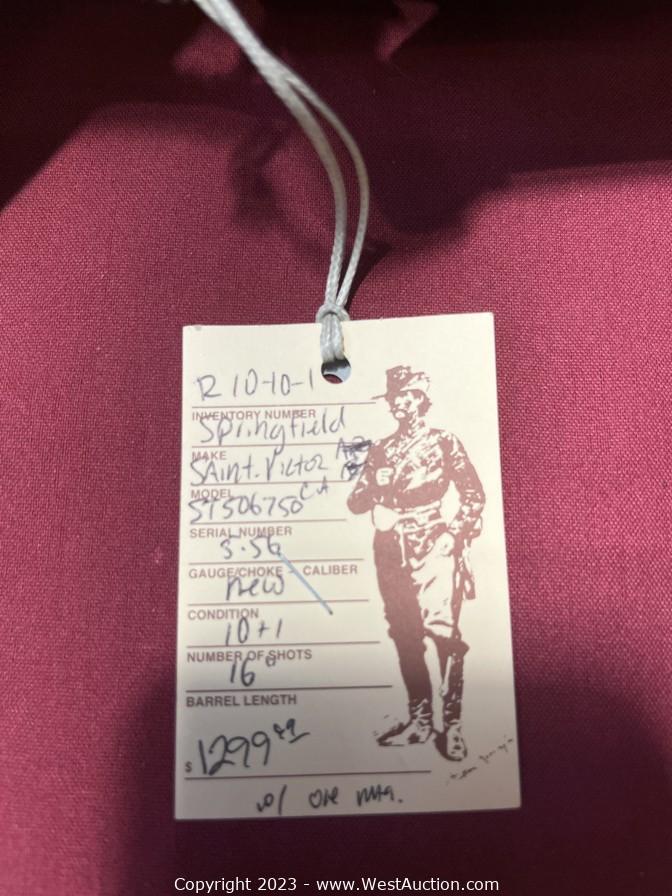 R 10-10-1
INVENTORY NUMBER
Springfield
MAKE
SAint. Victor
MODEL
CA
ST506750
SERIAL NUMBER
5.56
GAUGE/CHOKE - CALIBER
new
CONDITION
10+1
NUMBER OF SHOTS
16"
BARREL LENGTH
$ 1299 99
w/ one mag.
Copyright 2023 - www.WestAuction.com